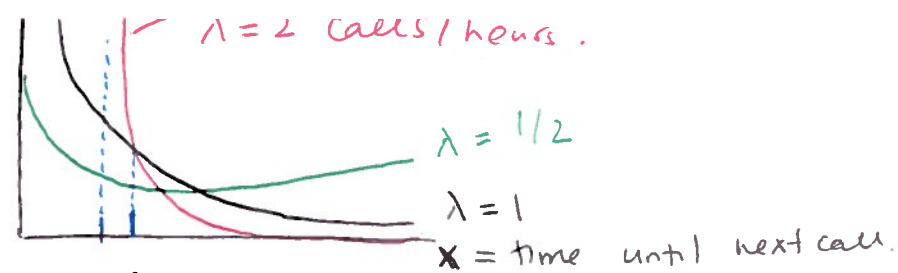 λ = 2 calls / hours.
λ = 1/2
λ = 1
x = time until next call.